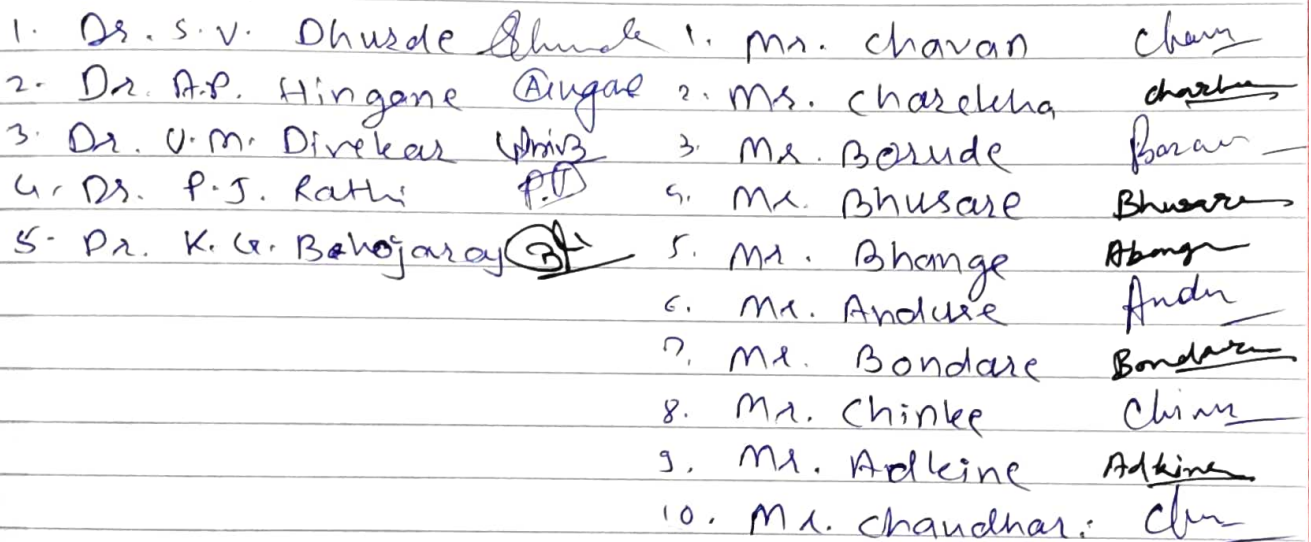 1. Dr. S.V. Dhurde
2. Dr. A.P. Hingane
3. Dr. V.M. Divekar
4. Dr. P.J. Rathi P.J
5. Dr. K.G. Bahojaraj
1. Mr. Chavan
2. Mr. Charekha
3. Mr. Borude
4. Mr. Bhusare Bhusare
5. Mr. Bhange
6. Mr. Andure
7. Mr. Bondare Bondare
8. Mr. Chinke
9. Mr. Adkine Adkine
10. Mr. Chaudhari